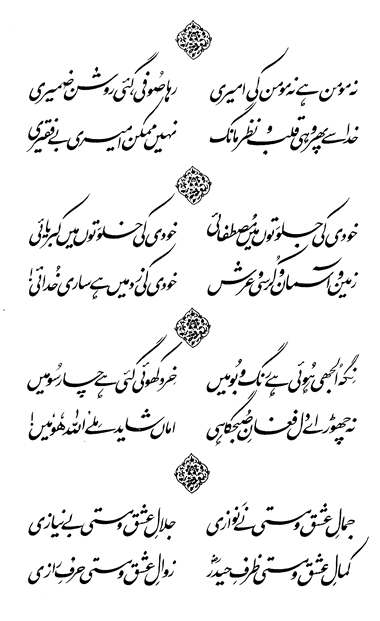 نہ مومن ہے نہ مومن کی امیری رہا صُوفی، گئی روشن ضمیری
خدا سے پھر وہی قلب و نظر مانگ نہیں ممکن امیری بے فقیری
خودی کی جلوَتوں میں مُصطفائی خودی کی خلوَتوں میں کبریائی
زمین و آسمان و کُرسی و عرش خودی کی زد میں ہے ساری خُدائی!
نِگہ اُلجھی ہُوئی ہے رنگ و بُو میں خِرد کھوئی گئی ہے چار سُو میں
نہ چھوڑ اے دل فغانِ صُبحگاہی اماں شاید مِلے، اللہ ھُو میں!
جمالِ عشق و مستی نَے نوازی جلالِ عشق و مستی بے نیازی
کمالِ عشق و مستی ظرفِ حیدرؓ زوالِ عشق و مستی حرفِ رازی